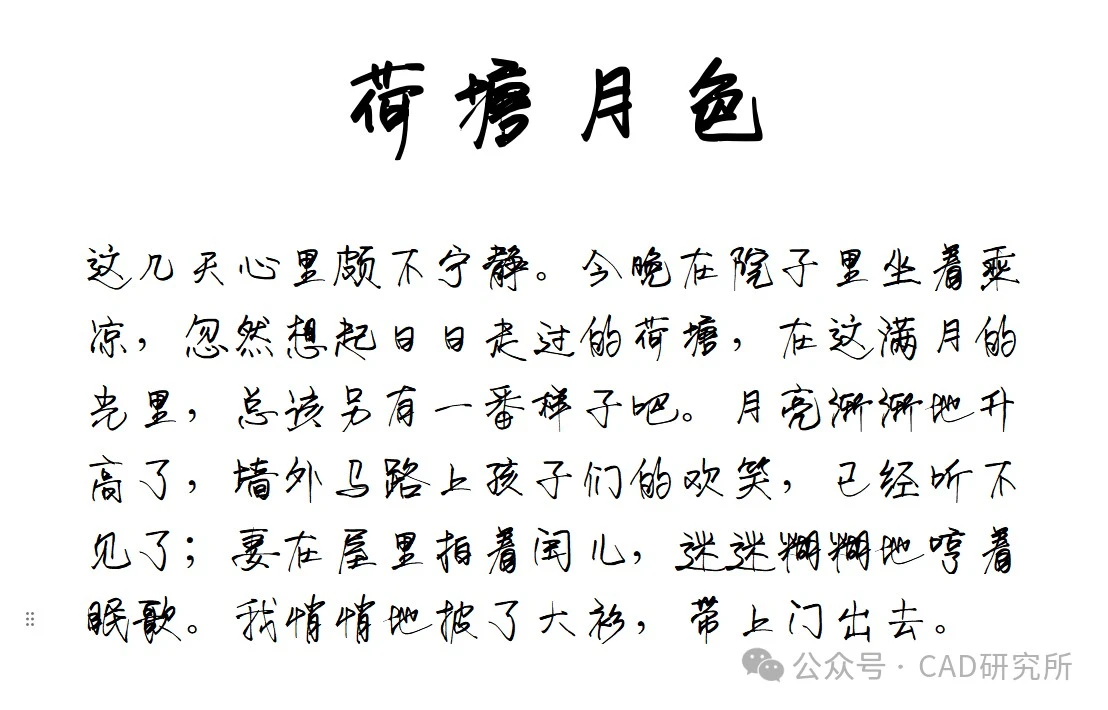 荷塘月色
这几天心里颇不宁静。今晚在院子里坐着乘
凉，忽然想起日日走过的荷塘，在这满月的
光里，总该另有一番样子吧。月亮渐渐地升
高了，墙外马路上孩子们的欢笑，已经听不
见了；妻在屋里拍着闰儿，迷迷糊糊地哼着
眠歌。我悄悄地披了大衫，带上门出去。
公众号·CAD研究所